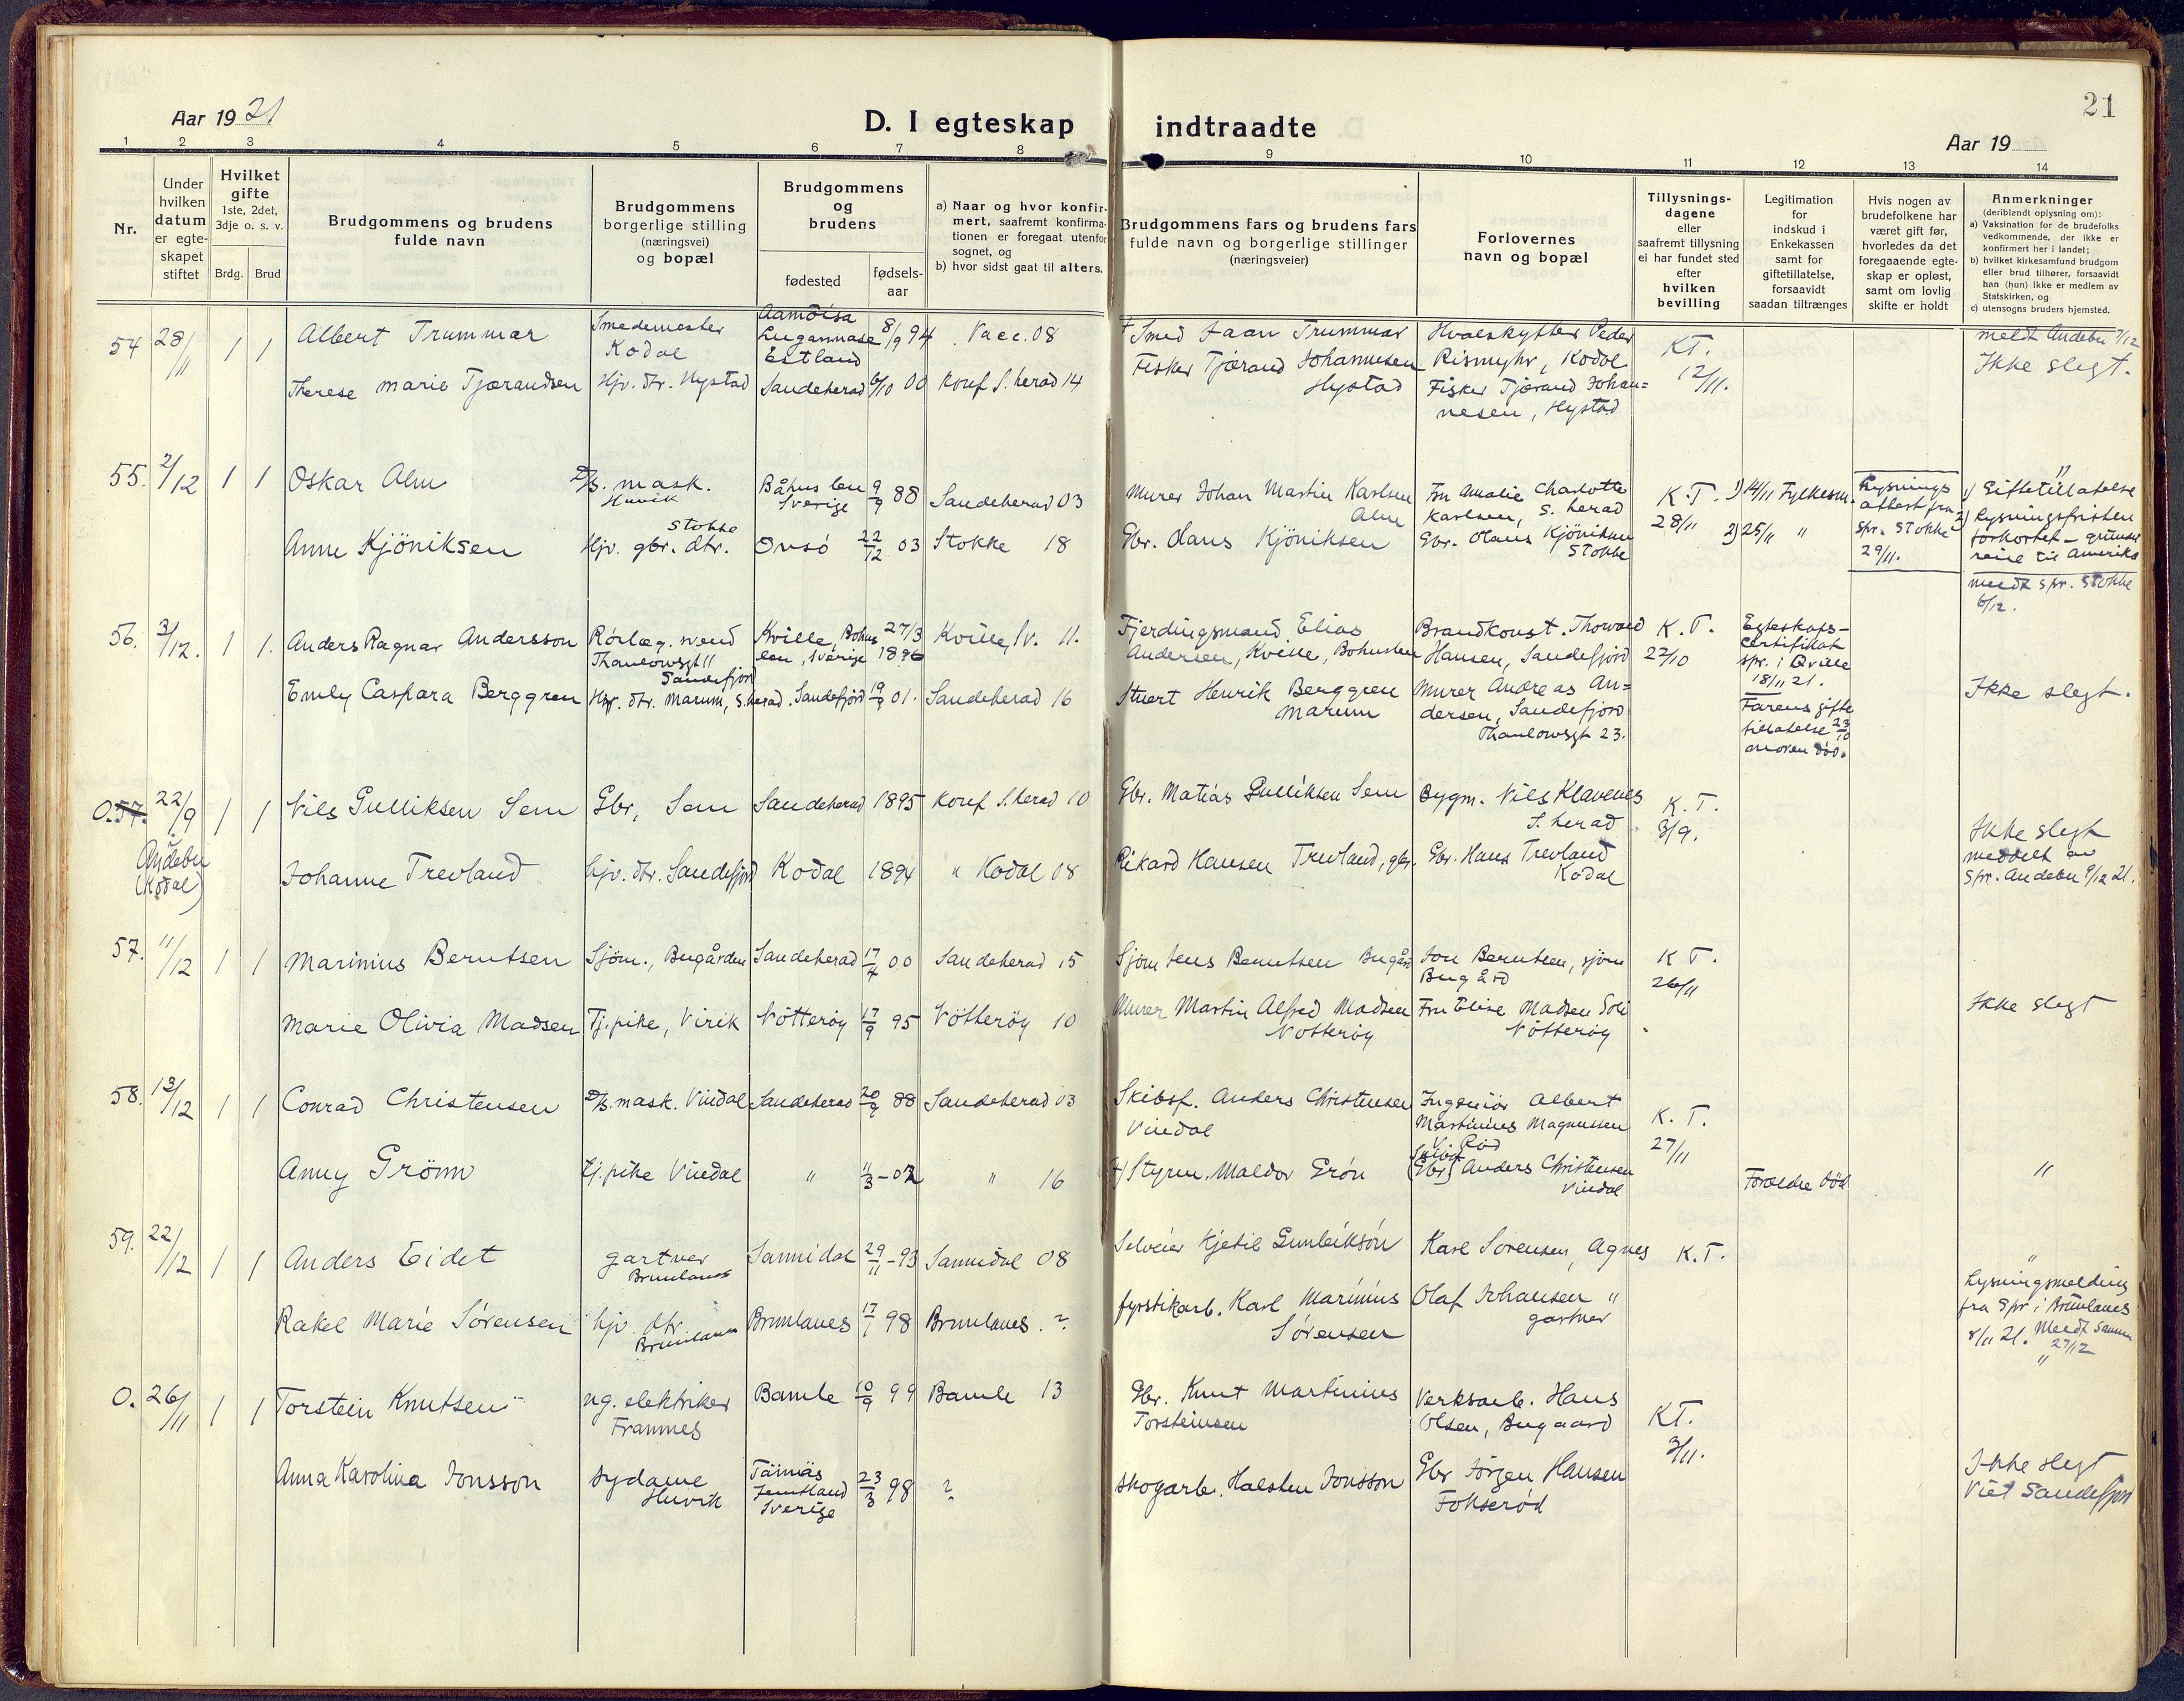 21
Aar 1921
D. I egteskap indtraadte
Aar 19
1 2 3 4 5 6 7 8 9 10 11 12 13 14
Nr.
Under
hvilken
datum
er egte-
skapet
stiftet
Hvilket
gifte
1ste, 2det,
3dje o. s. v.
Brdg. Brud
Brudgommens og brudens
fulde navn
Brudgommens
borgerlige stilling
(næringsvei)
og bopæl
Brudgommens
og
brudens
fødested
fødsels-
aar
a) Naar og hvor konfir-
mert, saafremt konfirma-
tionen er foregaat utenfor
sognet, og
b) hvor sidst gaat til alters.
Brudgommens fars og brudens fars
fulde navn og borgerlige stillinger
(næringsveier)
Forlovernes
navn og bopæl
Tillysnings-
dagene
eller
saafremt tillysning
ei har fundet sted
efter
hvilken
bevilling
Legitimation
for
indskud i
Enkekassen
samt for
giftetillatelse,
forsaavidt
saadan tiltrænges
Hvis nogen av
brudefolkene har
været gift før,
hvorledes da det
foregaaende egte-
skap er opløst,
samt om lovlig
skifte er holdt
Anmerkninger
(deriblandt oplysning om):
a) Vaksination for de brudefolks
vedkommende, der ikke er
konfirmert her i landet;
b) hvilket kirkesamfund brudgom
eller brud tilhører, forsaavidt
han (hun) ikke er medlem av
Statskirken, og
c) utensogns bruders hjemsted.
54 28/11 1 1
Albert Trummar
Smedemester
Kodal
Luganuase
Estland
8/9 94
Vacc. 08
† Smed Jaan Trummar
Hvalskytter Peder
Rismyhr, Kodal
K.T.
12/11.
meldt Andebu 7/12
Ikke slegt.
Therese Marie Tjærandsen
Hjv. dtr. Nystad
Sandeherad 6/10 00
Konf. S. herad 14
Fisker Tjærand Johannesen
Hystad
Fisker Tjærand Johan=
nesen, Hystad
55. 2/12 1 1
Oskar Alm
D/S. mask.
Huvik
Båhus len
Sverige
9/9 88
Sandeherad 03
Murer Johan Martin Karlsen
Alm
Fru Amalie Charlotte
Karlsen, S. herad
K.T.
28/11
1) 14/11 Fylkesm.
2) 25/11 "
Lysnings
attest fra
spr. Stokke
29/11.
"
1) Giftetillatelse
2) Lysningsfristen
forkortet – grunnet
reise til Amerika
meldt spr. Stokke
6/12.
Anne Kjöniksen
Hjv. gbr. dtr.
Stokke
Onsö
22/12 03
Stokke 18
Gbr. Olaus Kjöniksen
Gbr. Olaus Kjöniksen
Stokke
56. 3/12. 1 1.
Anders Ragnar Andersson
Rörlæg. svend
Thaulowsgt 11
Sandefjord
Kville, Bohus
len, Sverige
27/3
1896
Kville, Sv. 11.
Fjerdingsmand Elias
Andersen, Kville, Bohuslen
Brandkonst. Thorvald
Hansen, Sandefjord
K.T.
27/10
Egteskaps-
certifikat
spr. i Qville
18/11 21.
Emely Caspara Berggren
Hjv. dtr. Marum, S. herad.
Sandefjord 19/9 01.
Sandeherad 16
Stuert Henrik Berggren
Marum
Murer Andreas An=
dersen, Sandefjord
Thaulowsgt 23.
Farens gifte
tillatelse 23/10
moren död.
Ikke slegt.
0. 57. 22/9 1 1
Andebu
(Kodal)
Nils Gulliksen Sem
Gbr, Sem
Sandeherad 1895
Konf S. herad 10
Gbr. Matias Gulliksen Sem
Bygm. Nils Klavenes
S. herad
K.T.
3/9.
Ikke slegt
meddelt av
Spr. Andebu 9/12 21.
Johanne Trevland
hjv. dtr. Sandefjord
Kodal 1894
" Kodal 08
Rikard Hansen Trevland, gbr.
Gbr. Hans Trevland
Kodal
57. 11/12 1 1
Marinius Berntsen
Sjöm., Bugården
Sandeherad 17/4 00
Sandeherad 15
Sjöm Jens Berntsen Bugård
Jon Berntsen, sjöm
Bugård
K.T.
26/11
Marie Olivia Madsen
Tj.pike, Virik
Nötteröy 17/9 95
Nötteröy 10
Murer Martin Alfred Madsen
Nötteröy
Fru Elise Madsen
Nötteröy
Ikke slegt
58. 13/12 1 1
Conrad Christensen
D/S. mask. Vindal
Sandeherad 20/9 88
Sandeherad 03
Skibsf. Anders Christensen
Vindal
Ingeniör Albert
Martinius Magnussen
V. Röd
K.T.
27/11
Anny Grönn
tj. pike Vindal
" 11/3 - 02
" 16
†) Styrm. Maldor Grön
(Gbr) Anders Christensen
Vindal
Forældre död
"
59. 22/12 1 1
Anders Eidet
gartner
Brunlanes
Sannidal 29/11 - 93
Sannidal 08
Selveier Kjetil Gunleiksön
Karl Sorensen, Agnes
K.T.
"
Lysningsmelding
fra Spr i Brunlanes
8/11 21. Meldt samme
27/12
Rakel Marie Sörensen
hjv. dtr.
Brunlanes
Brunlanes 17/1 98
Brunlanes. ?
fyrstikarb. Karl Marinius
Sörensen
Olaf Johansen "
gartner
0. 26/11 1 1
Torstein Knutsen
ug. elektriker
Framnes
Bamle 10/9 99
Bamle 13
Gbr. Knut Martinius
Torsteinsen
Verksarb. Hans
Olsen, Bugaard
K.T.
3/11.
"
Anna Karolina Jonsson
Sydame
Huvik
Tännäs
Jemtland
Sverige
23/3 98
?
Skogarb. Halsten Jonsson
Gbr Jörgen Hansen
Fokseröd
Ikke slegt
Viet Sandefjord